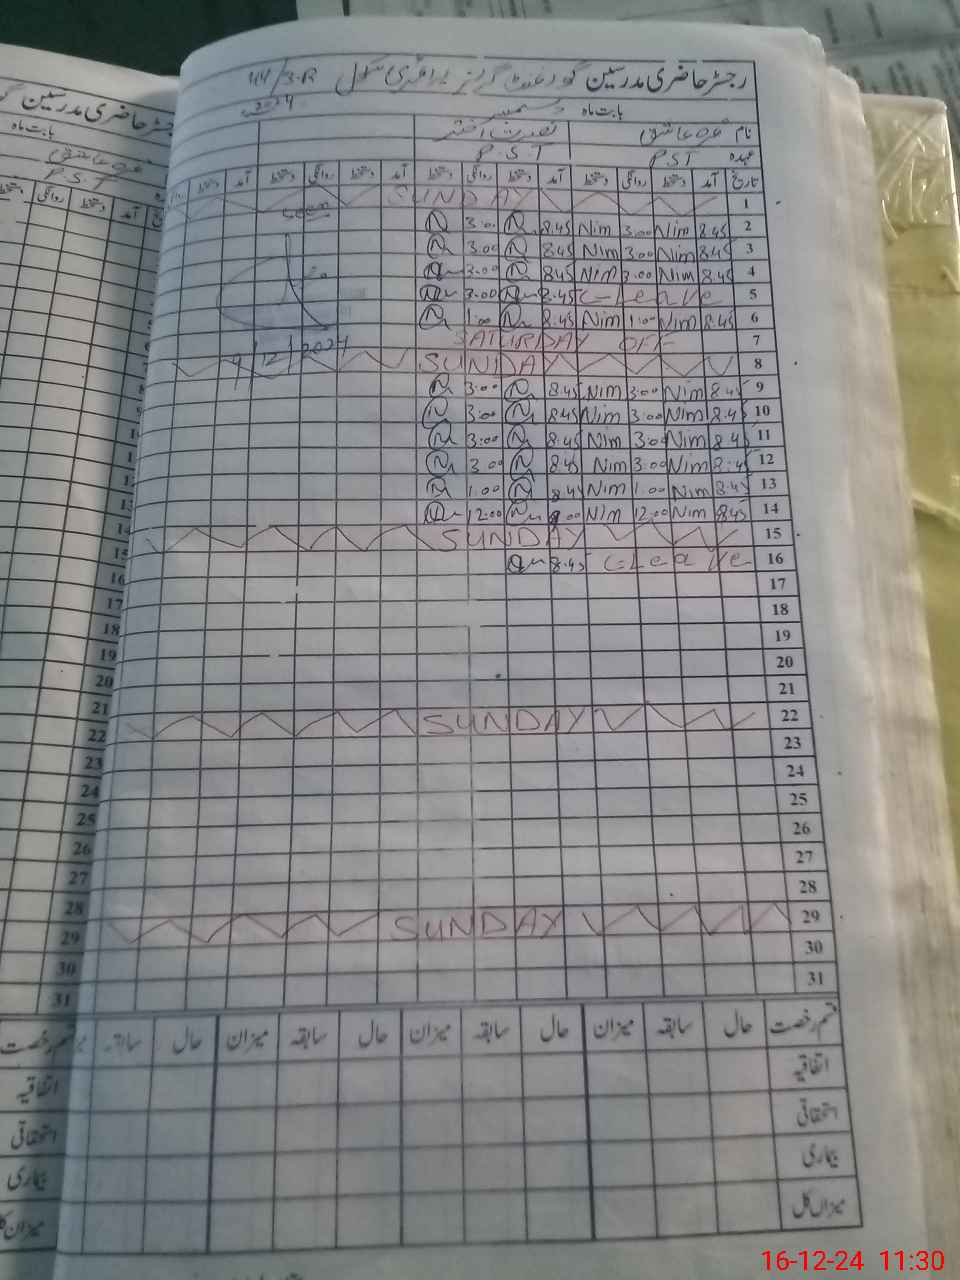 رجسٹر حاضری مدرسین گورنمنٹ گرلز پرائمری سکول 44/3-R
بابت ماہ دسمبر 2024
نام نصرت اختر
عہدہ PST P.S.T
تاریخ آمد دستخط روانگی دستخط آمد دستخط روانگی دستخط آمد دستخط روانگی دستخط آمد
1 SUNDAY
2 8.45 Nim 3.00 Nim 8.45 3.00 Seen
3 8.45 Nim 3.00 Nim 8.45 3.00
4 8.45 Nim 3.00 Nim 8.45 3.00
5 C-Leave 8.45 3.00
6 8.45 Nim 1.00 Nim 8.45 1.00
7 SATURDAY OFF
9/12/2024
8 SUNDAY
9 8.45 Nim 3.00 Nim 8.45 3.00
10 8.45 Nim 3.00 Nim 8.45 3.00
11 8.45 Nim 3.00 Nim 8.45 3.00
12 8.45 Nim 3.00 Nim 8.45 3.00
13 8.45 Nim 1.00 Nim 8.45 1.00
14 8.45 Nim 12.00 Nim 12.00
15 SUNDAY
16 C-Leave 8.45
17
18
19
20
21
22 SUNDAY
23
24
25
26
27
28
29 SUNDAY
30
31
قسم رخصت حال سابقہ میزان حال سابقہ میزان حال سابقہ میزان حال سابقہ
اتفاقیہ
استحقاقی
بیماری
میزان کل
16-12-24 11:30